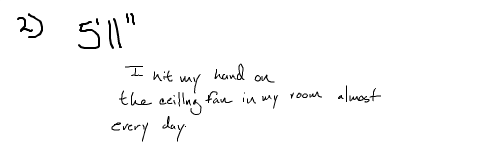 2) 5'11"
I hit my hand on
the ceiling fan in my room almost
every day.